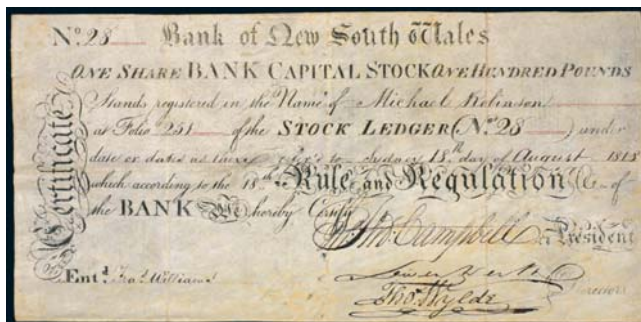 No. 28 Bank of New South Wales
ONE SHARE BANK CAPITAL STOCK ONE HUNDRED POUNDS
Stands registered in the Name of Michael Robinson
at Folio 251 of the STOCK LEDGER (No. 28) under
date or dates as there to Sydney 18th day of August 1818
which according to the 18th Rule and Regulation &c of
the BANK We hereby Certify
Certificate
Jno. Campbell President
Entd. Williams
Directors
Thos. Wylde